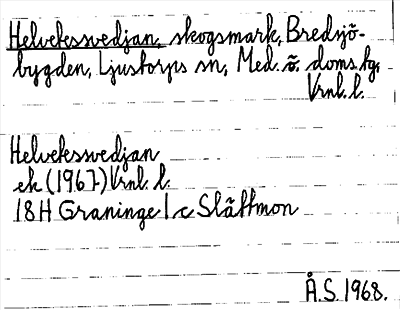 Helvetessvedjan, skogsmark, Bredsjö-
bygden, Ljustorps sn, Med. ö. doms.hg,
Vrnl. l.
Helvetessvedjan
ek (1967) Vrnl. l.
18H Graninge 1 c Slättmon
Å.S. 1968.